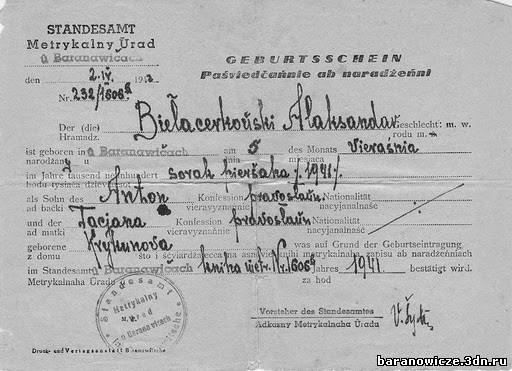 STANDESAMT
Metrykalny Ŭrad
ŭ Baranawičach
GEBURTSSCHEIN
Paśviedčańnie ab naradžeńni
den 2.IV. 194
Nr. 232/1606
Der (die) Biełacerkoŭski Alaksandar Geschlecht: m. w.
Hramadz. rodu m.
ist geboren in ŭ Baranawičach am 5 des Monats Vieraśnia
naradžany ŭ dnia miesiaca
im Jahre tausend neunhundert sorak pieršaha /1941/.
hodu tysiača dziewiaćsot
als Sohn des Anton Konfession pravosłaŭn. Nationalität
ad baćki vieravyznańnie nacyjanalnaść
und der Tacjana Konfession pravosłaŭn Nationalität
ad matki vieravyznańnie nacyjanalnaść
geborene Krykunova was auf Grund der Geburtseintragung
z domu što i śćviardžajecca na asnovie metrykalnaha zapisu ab naradžeńniach
im Standesamt ŭ Baranawičach kniha metr. Nr. 1606 Jahres 1941 bestätigt wird.
Metrykalnaha Ŭradu za hod
Standesamt
Metrykalny
Ŭrad
Baranawičach
Vorsteher des Standesamtes
Adkazny Metrykalnaha Ŭradu
Druck- und Verlagsanstalt Baranowitsche
baranowicze.3dn.ru